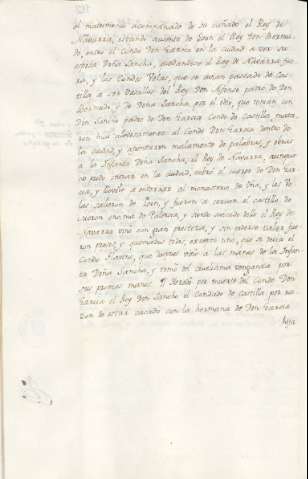 el matrimonio acompañado de su cuñado el Rey de
Navarra, estando ausente de Leon el Rey Don Bermu-
do, entró el Conde Don Garcia en la ciudad a ver su
esposa Doña Sancha, quedandose el Rey de Navarra fue-
ra, y los Condes Velas, que se avian pasado de Cas-
tilla a ser Vasallos del Rey Don Alfonso padre de Don
Bermudo, y de Doña Sancha, por el odio, que tenian con
Don Sancho padre de Don Garcia Conde de Castilla mata-
ron alevosamente al Conde Don Garcia dentro de
la ciudad, y apuntaron malamente de palabras, y obras
a la Infanta Doña Sancha; el Rey de Navarra, aunque
no pudo entrar en la ciudad, cobró el cuerpo de Don Gar-
cia, y llevolo a enterrar al monasterio de Oña, y los Ve-
las salieron de Leon, y fueron a cercar el castillo de
Monzon cerca de Palencia, y siendo avisado dello el Rey de
Navarra vino con gran presteza, y los Condes Velas fue-
ron presos, y quemados vivos, excepto uno, que se decia el
Conde Flavino, que despues vino a las manos de la Infan-
ta Doña Sancha, y tomó del cruelissima venganza por
sus propias manos. Heredó por muerte del Conde Don
Garcia el Rey Don Sancho el Condado de Castilla por ra-
zon de estar casado con la hermana de Don Garcia
hija